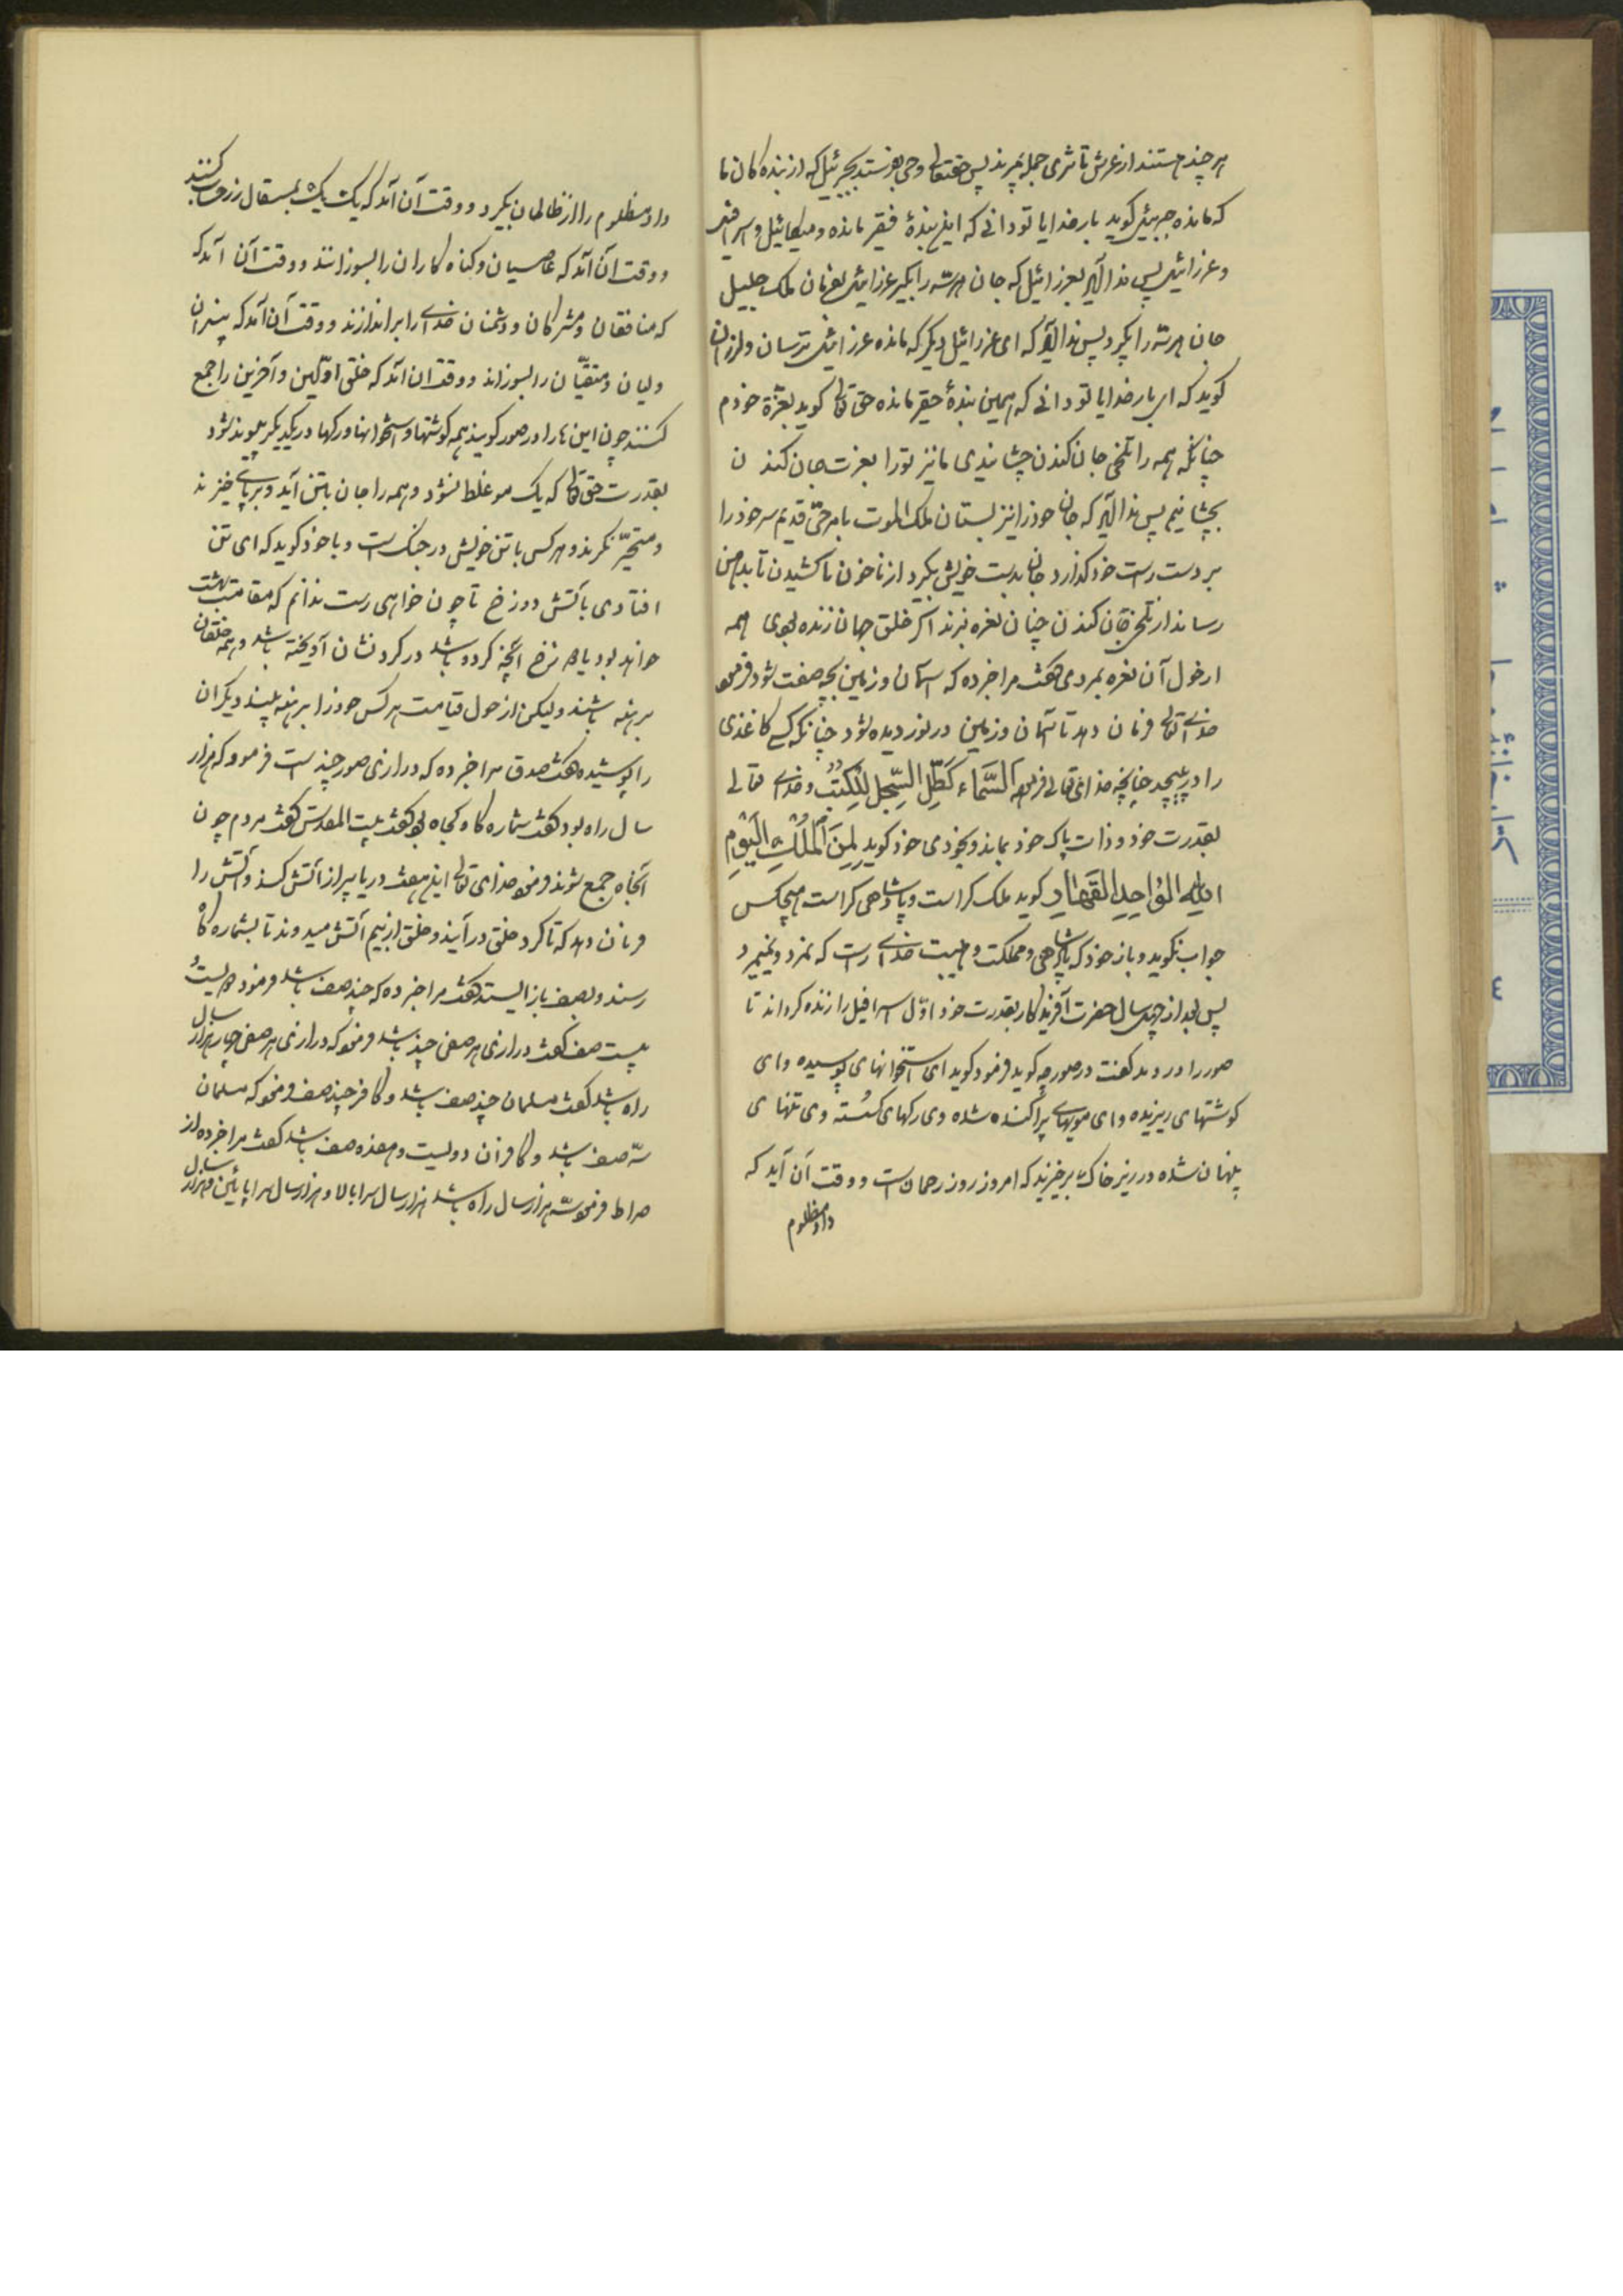 هر چند هستند از عرش تا ثری جمله بمیرند پس حقتعالی وحی بفرستد بجبرئیل که از بنده کان ما
که مانده جبرئیل کوید بار خدایا تو دانی که این بندهٔ فقیر مانده و میکائیل و اسرافیل
و عزرائیل پس ندا آید بعزرائیل که جان هر سه را بکیر عزرائیل بفرمان ملک جلیل
جان هر سه را بکیرد پس ندا آید که ای عزرائیل دیکر که مانده عزرائیل ترسان و لرزان
کوید که ای بار خدایا تو دانی که همین بندهٔ حقیر مانده حق تعالی کوید بعزة خودم
چنانکه همه را تلخی جان کندن چشانیدی ما نیز تو را بعزت جان کندن
بچشانیم پس ندا آید که جان خود را نیز بستان ملک الموت بامر حیّ قدیم سر خود را
بر دست راست خود کذارد و جان بدست خویش بکیرد از ناخون پا کشیدن تا بدهن
رساند از تلخی جان کندن چنان نعره بزند اکر خلق جهان زنده بودی همه
از هول آن نعره بمردی کفت مرا خبر ده که آسمان و زمین بچه صفت شود فرمود
خدای تعالی فرمان دهد تا آسمان و زمین در نوردیده شود چنانکه کسی کاغذی
را در پیچد چنانچه خدای تعالی فرمود السَّمَاء كَطَيِّ السِّجِلِ لِلْكُتُبِ و خدای تعالی
بقدرت خود و ذات پاک خود بماند و بخودی خود کوید لِمَنِ الْمُلْكُ الْيَوْمِ
لِلّهِ الْوَاحِدِ الْقَهَّارِ کوید ملک کراست و پادشاهی کراست هیچکس
جواب نکوید و باز خود کوید پادشاهی و مملکت و هیبت خدای راست که نمرد و نمیرد
پس بعد از چهل سال حضرت آفریدکار بقدرت خود اوّل اسرافیل را زنده کرداند تا
صور را در دمد کفت در صور چه کوید فرمود کوید ای استخوانهای پوسیده و ای
کوشتهای ریزیده و ای مویهای پراکنده شده و ی رکهای کسسته و ی تنهای
پنهان شده در زیر خاک برخیزید که امروز روز رحمان است و وقت آن آید که
داد مظلوم
داد مظلوم را از ظالمان بکیرد و وقت آن آمد که یک یک بمثقال زر حساب کنند
و وقت آن آمد که عاصیان و کناه کاران را بسوزانند و وقت آن آمد که
که منافقان و مشرکان و دشمنان خدای را براندازند و وقت آن آمد که پیغمبران
ولیان و متقیّان را بسوزاند و وقت ان آمد که خلق اوّلین و آخرین را جمع
کنند چون این ها را در صور کویند همه کوشتها و استخوانها و رکها در یکدیکر پیوند شود
بقدرت حق تعالی که یک مو غلط نشود و همه را جان باتن آید و بر پای خیزند
و متحیّر نکرند و هر کس با تن خویش در جنک است و با خود کوید که ای تن
افتادی باتش دوزخ تا چون خواهی رست ندانم که مقامت بهشت
خواهد بود یا دوزخ آنچه کرده باشد در کردنشان آویخته باشد و همه خلقان
برهنه باشند ولیکن از هول قیامت هر کس خود را برهنه بیند و دیکران
را پوشیده کفت صدق مرا خبر ده که درازی صور چند است فرمود که هزار
سال راه بود کفت شماره کاه کجا بود کفت بیت المقدس کفت مردم چون
آنجا جمع شوند فرمود خدای تعالی این هفت دریا پر از آتش کند و آتش را
فرمان دهد که تا کرد خلق در آیند و خلق از بیم آتش میدوند تا بشماره کاه
رسند و بصف باز ایستند کفت مرا خبر ده که چند صف باشد فرمود دویست
بیست صف کفت درازی هر صفی چند باشد فرمود که درازی هر صفی چهار هزار سال
راه باشد کفت مسلمان چند صف باشد و کافر چند صف فرمود که مسلمان
سه صف باشد و کافران دویست و هفده صف باشد کفت مرا خبر ده از
صراط فرمود سه هزار سال راه باشد هزار سال سر بالا و هزار سال سرا پائین و هزار سال